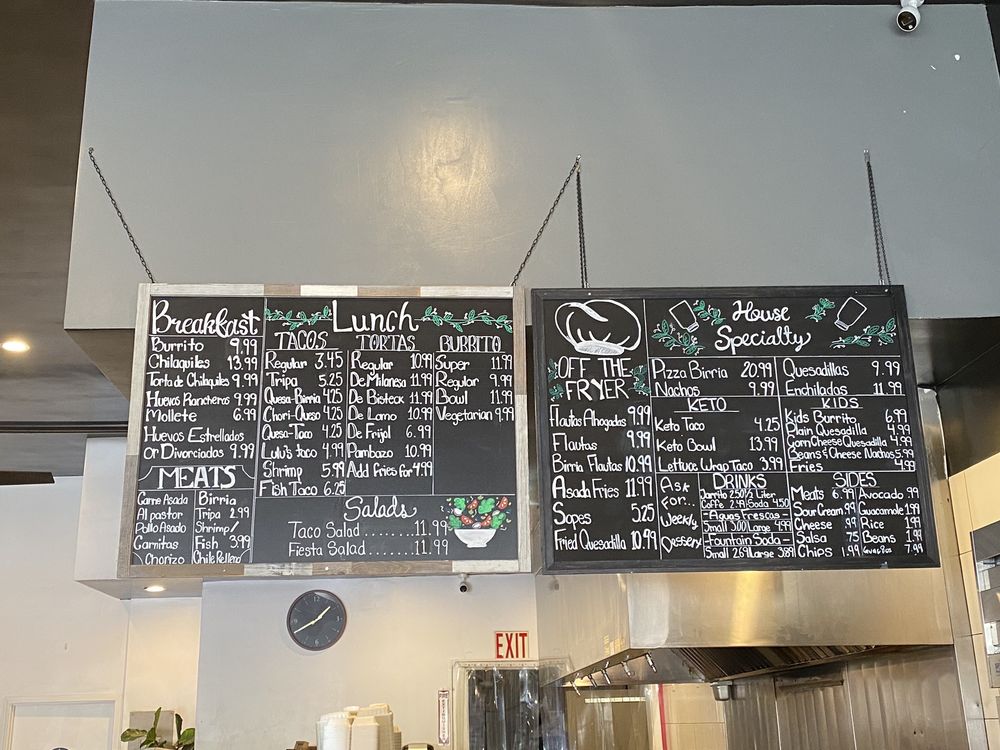 Breakfast
Burrito 9.99
Chilaquiles 13.99
Torta de Chilaquiles 9.99
Huevos Rancheros 9.99
Mollete 6.99
Huevos Estrellados
or Divorciados 9.99
MEATS
Carne Asada
Al pastor
Pollo Asado
Carnitas
Chorizo
Birria
Tripa 2.99
Shrimp/
Fish 3.99
Chile Relleno
Lunch
TACOS
Regular 3.45
Tripa 5.25
Quesa-Birria 4.25
Chori-Queso 4.25
Quesa-Taco 4.25
Lulu's taco 4.99
Shrimp 5.99
Fish Taco 6.25
TORTAS
Regular 10.99
De Milanesa 11.99
De Bisteck 11.99
De Lomo 10.99
De Frijol 6.99
Pambazo 10.99
Add fries for 4.99
BURRITO
Super 11.99
Regular 9.99
Bowl 11.99
Vegetarian 9.99
Salads
Taco Salad........11.99
Fiesta Salad.......11.99
OFF THE
FRYER
Flautas Ahogadas 9.99
Flautas 9.99
Birria Flautas 10.99
Asada Fries 11.99
Sopes 5.25
Fried Quesadilla 10.99
House
Specialty
Pizza Birria 20.99
Nachos 9.99
Quesadillas 9.99
Enchiladas 11.99
KETO
Keto Taco 4.25
Keto Bowl 13.99
Lettuce Wrap Taco 3.99
KIDS
Kids Burrito 6.99
Plain Quesadilla 4.99
Corn Cheese Quesadilla 4.99
Beans & Cheese Nachos 5.99
Fries 4.99
Ask
For...
Weekly
Dessert
DRINKS
Jarrito 2.50 1/2 Liter
Coffe 2.49 Soda 4.50
-Aguas Frescas-
Small 3.00 Large 4.99
-Fountain Soda-
Small 2.69 Large 3.89
SIDES
Meats 6.99
Sour Cream .99
Cheese .99
Salsa .75
Chips 1.99
Avocado .99
Guacamole 1.99
Rice 1.99
Beans 1.99
7.99
EXIT